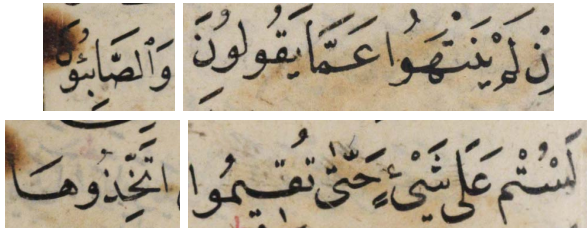 نْ لَمْ يَنْتَهُوا عَمَّا يَقُولُونَ
وَٱلصَّابِئُونَ
لَسْتُمْ عَلَى شَيْءٍ حَتَّى تُقِيمُوا
اتَّخَذُوهَا